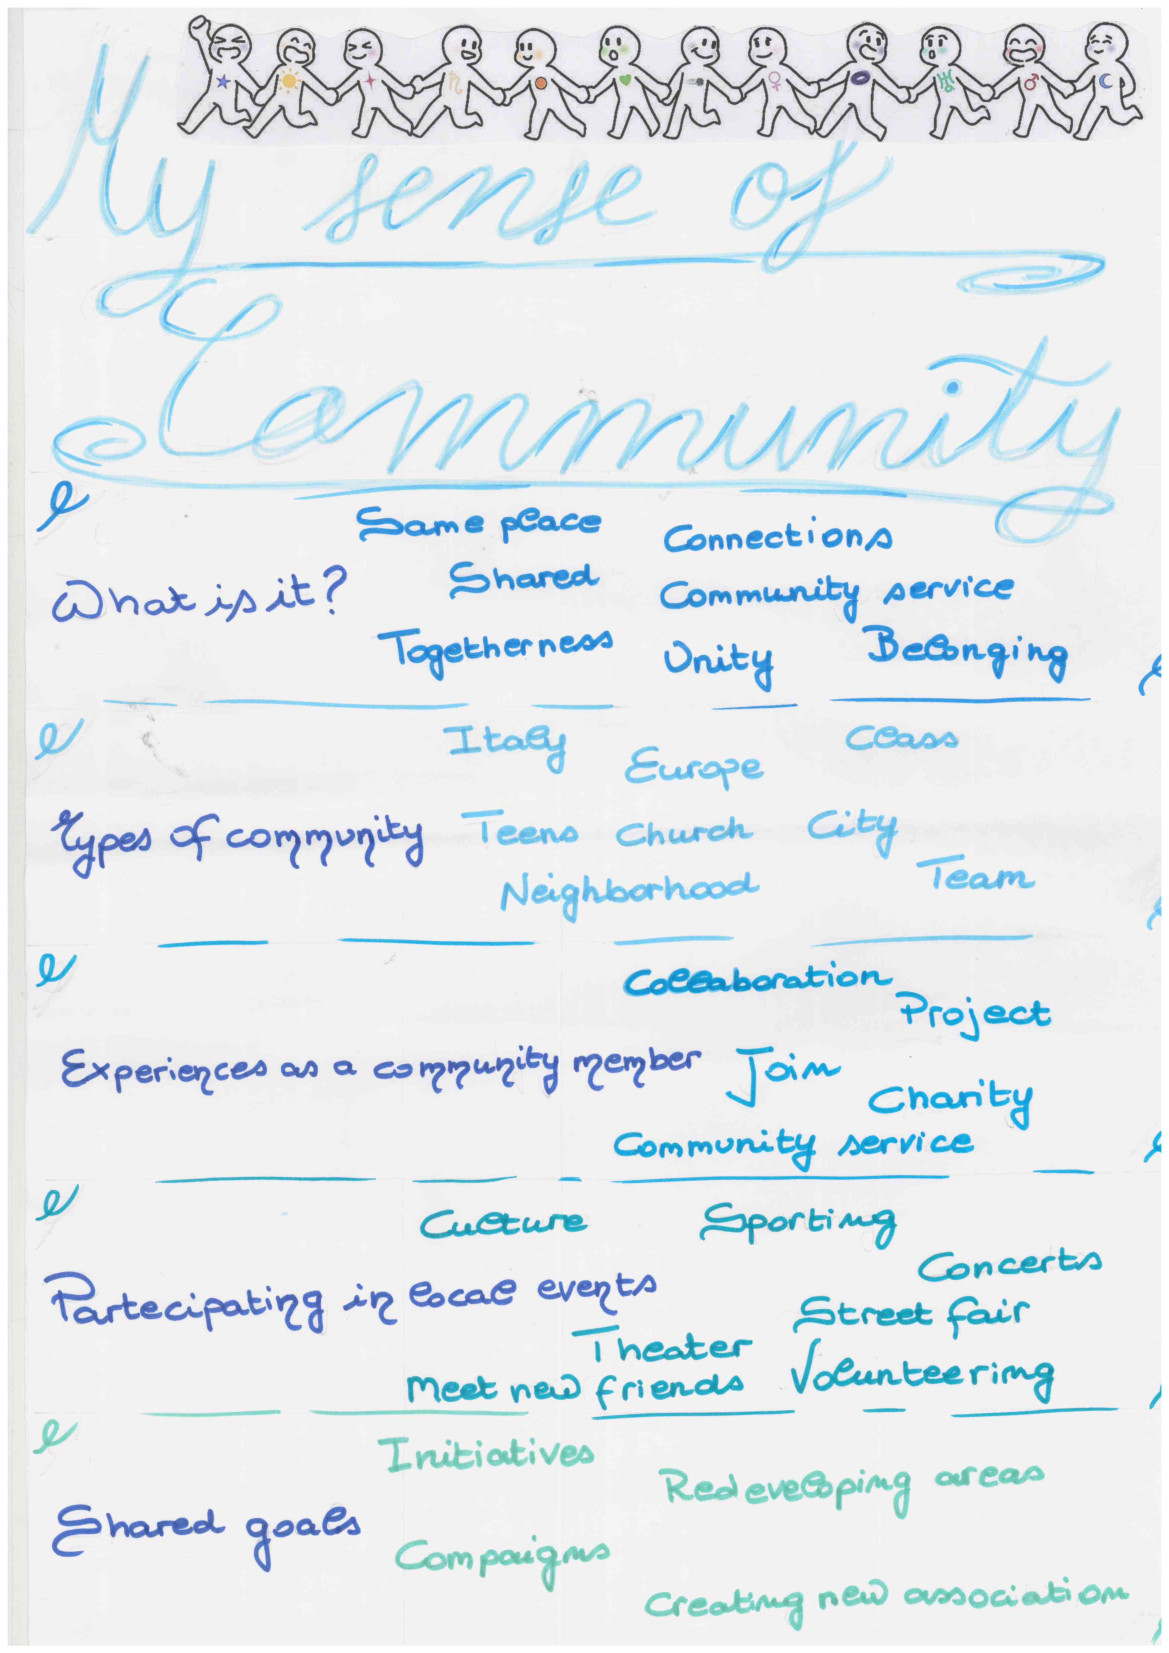 My sense of
Community
What is it?
Same place
Connections
Shared
Community service
Togetherness
Unity
Belonging
Types of community
Italy
Europe
Class
Teens
Church
City
Neighborhood
Team
Experiences as a community member
Collaboration
Project
Join
Charity
Community service
Partecipating in local events
Culture
Sporting
Concerts
Street fair
Theater
Meet new friends
Volunteering
Shared goals
Initiatives
Redeveloping areas
Compaigns
Creating new association